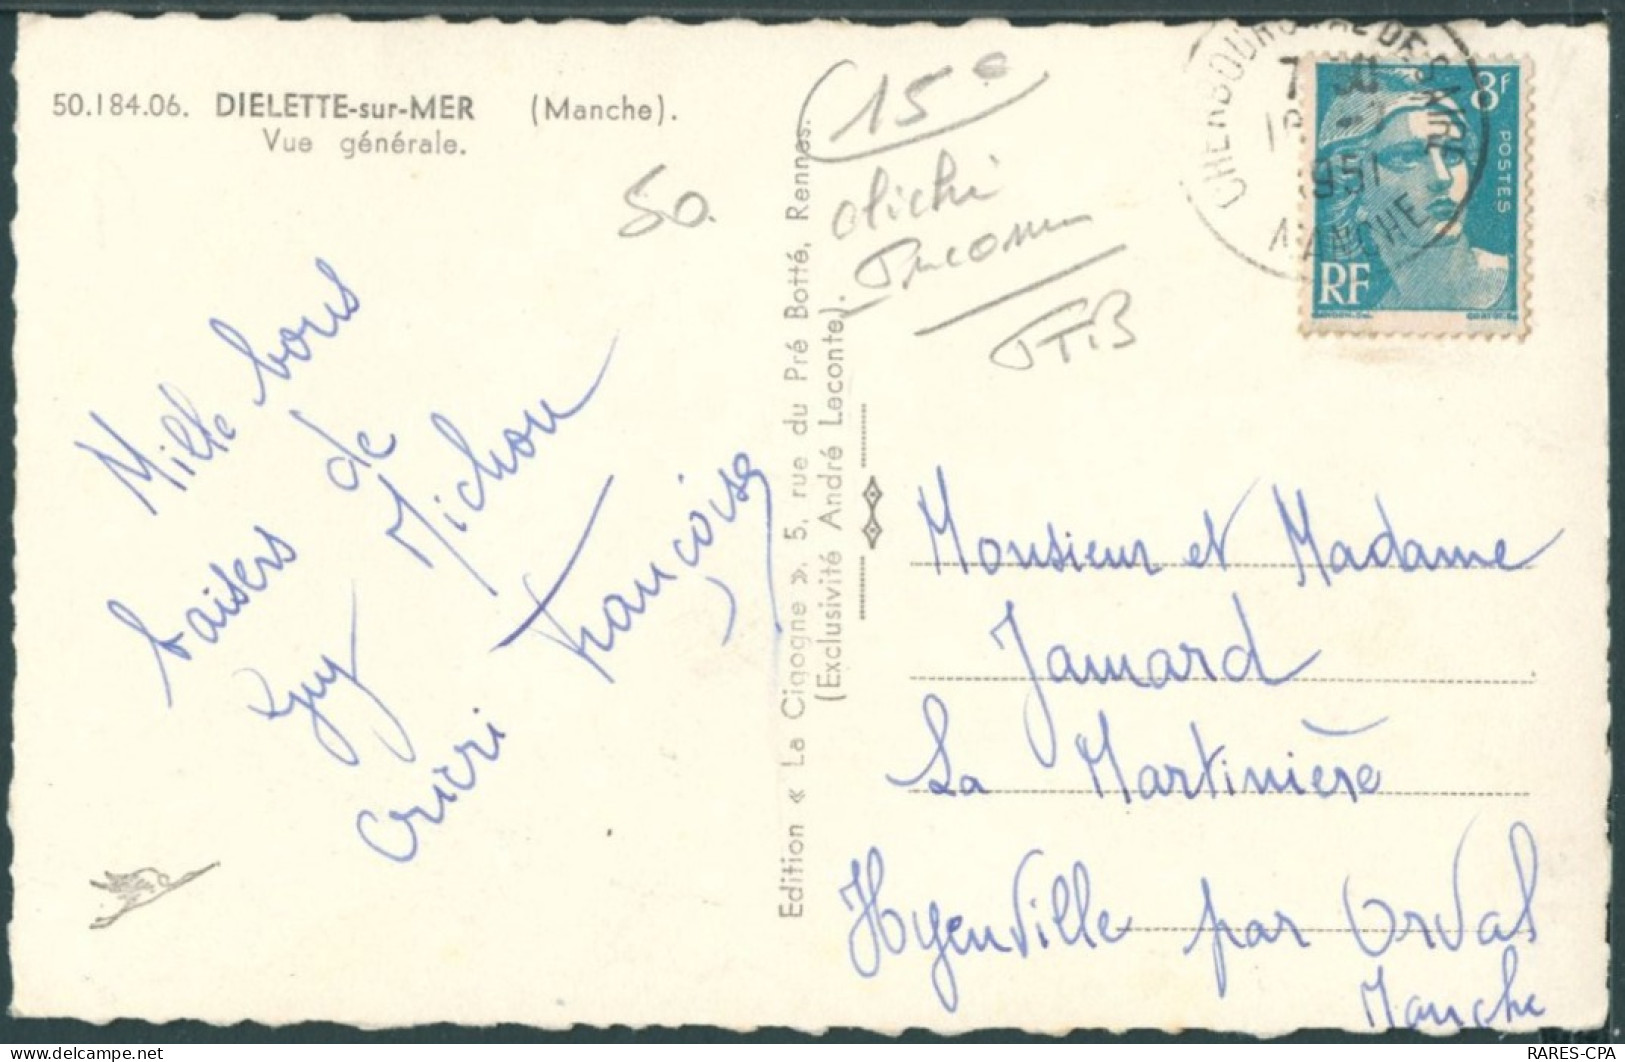 50.184.06. DIELETTE-sur-MER (Manche).
Vue générale.
50.
15€
cliché
peu commun
TTB
Mille bons
baisers de
Guy Michou
Cricri Françoise
Edition « La Cigogne », 5, rue du Pré Botté, Rennes.
(Exclusivité André Leconte).
CHERBOURG
7 30
1951
MANCHE
8F
POSTES
RF
Monsieur et Madame
Jamard
La Martinière
Hyenville par Orval
Manche
RARES-CPA